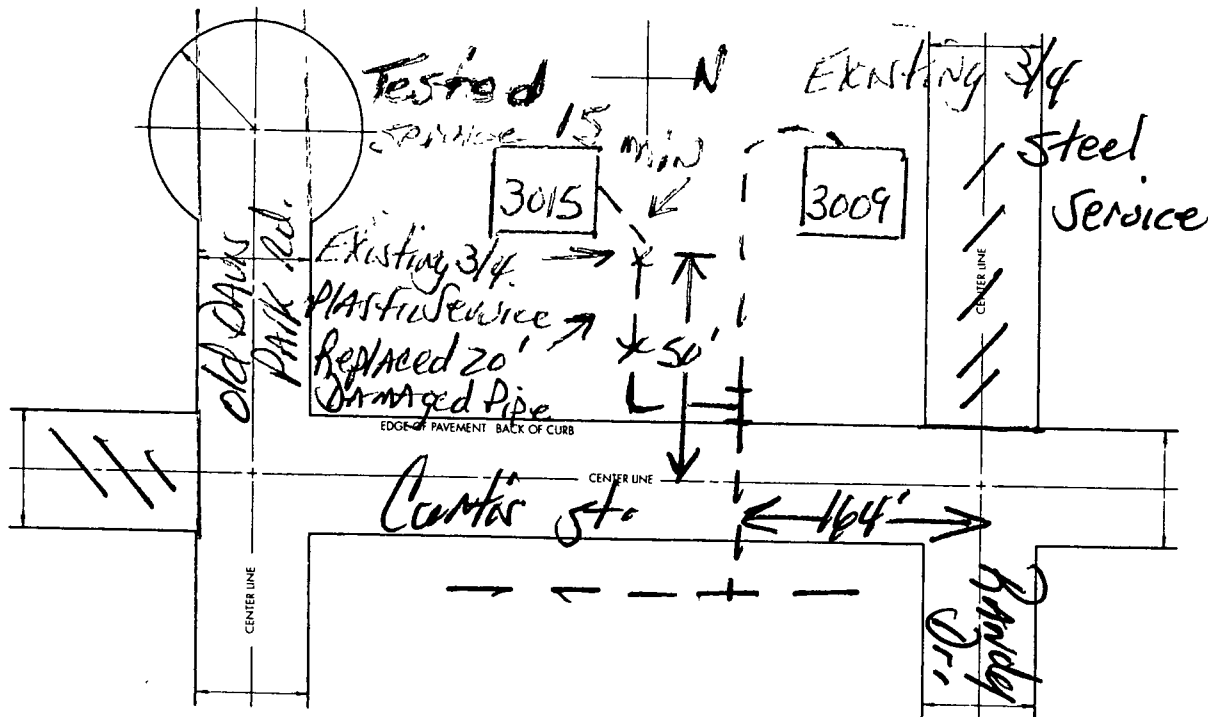 Tested
service 15 min
N
Existing 3/4
Steel
Service
3015
3009
Existing 3/4
Plastic Service
Replaced 20'
Damaged Pipe
50'
old Davis
Park Rd.
EDGE OF PAVEMENT BACK OF CURB
CENTER LINE
CENTER LINE
St.
164'
CENTER LINE
Randy
Dr.